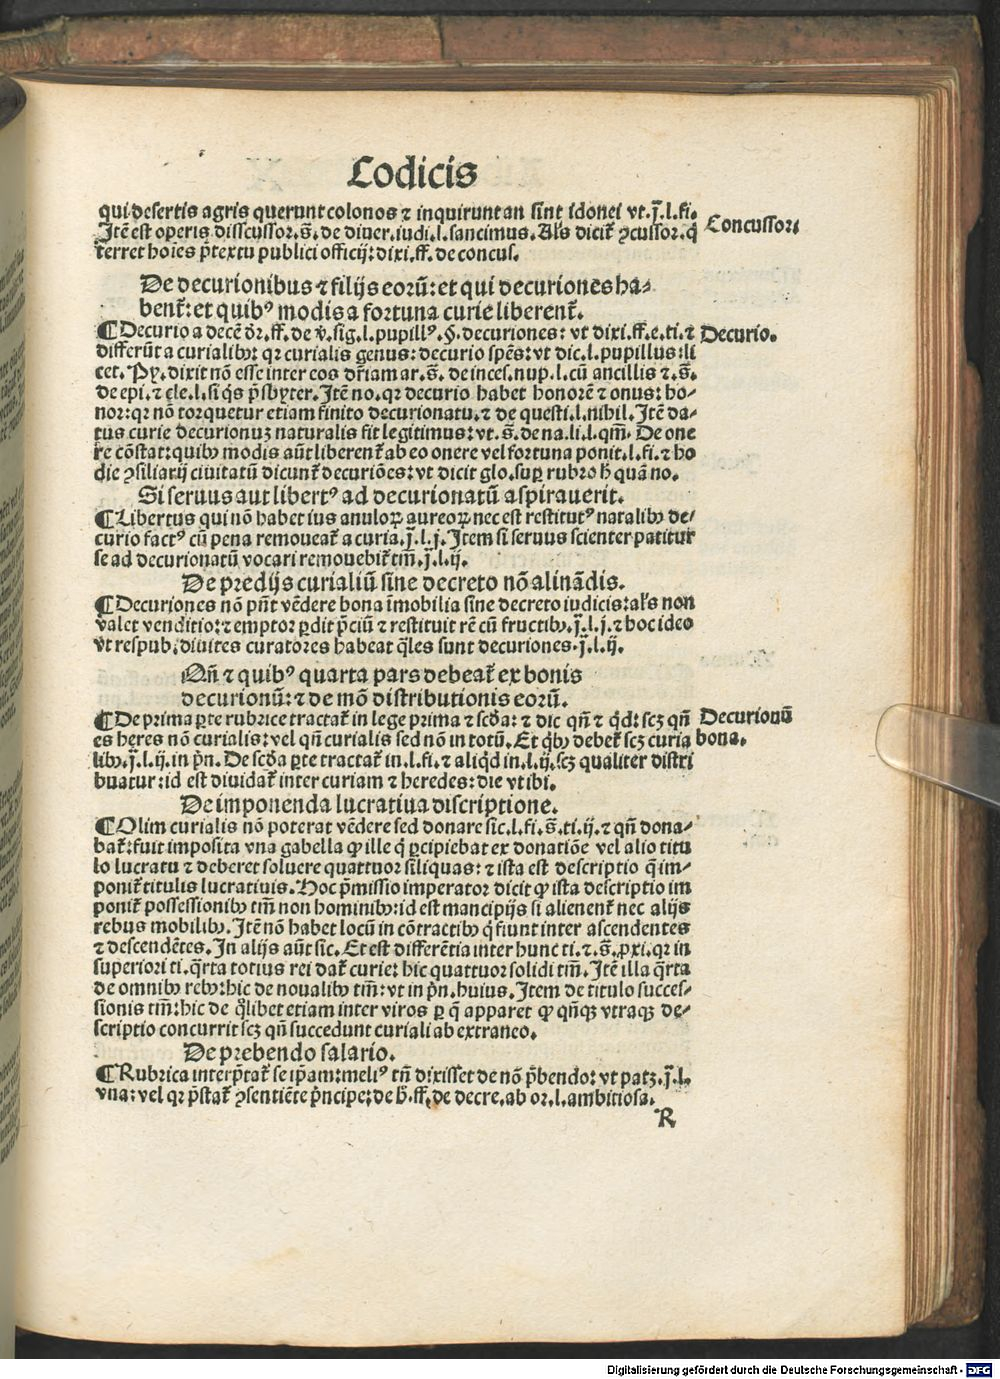 Codicis
qui desertis agris querunt colonos ⁊ inquirunt an sint idonei vt.j̄.l.fi.
Itē est operis disscussor.s̄.de diuer.iudi.l.sancimus. Al's dicit̄ ꝯcussor.q̄
terret hoīes p̄textu publici officij: dixi.ff.de concus.
Concussori
De decurionibus ⁊ filijs eorū: et qui decuriones ha-
bent̄: et quib⁹ modis a fortuna curie liberent̄.
¶ Decurio a decē dr̄.ff.de v̄.sig.l.pupill⁹.§.decuriones: vt dixi.ff.e.ti.⁊
Decurio.
differūt a curialibꝫ: qꝛ curialis genus: decurio spēs: vt dic.l.pupillus: li
cet. Py. dixit nō esse inter eos dr̄iam ar.s̄.de inces.nup.l.cū ancillis ⁊.s̄.
de epi.⁊ cle.l.si q̄s p̄sbyter. Itē no. qꝛ decurio habet honorē ⁊ onus: ho-
nor: qꝛ nō torquetur etiam finito decurionatu.⁊ de questi.l.nihil. Itē da-
tus curie decurionuꝫ naturalis fit legitimus: vt.s̄.de na.li.l.qm̄. De one
re cōstat: quibꝫ modis aūt liberent̄ ab eo onere vel fortuna ponit.l.fi.⁊ ho
die ꝯsiliarij ciuitatū dicunt̄ decuriōes: vt dicit glo.suꝑ rubro h̄ quā no.
Si seruus aut libert⁹ ad decurionatū aspirauerit.
¶ Libertus qui nō habet ius anuloꝝ aureoꝝ nec est restitut⁹ natalibꝫ de-
curio fact⁹ cū pena remoueat̄ a curia.j̄.l.j. Item si seruus scienter patitur
se ad decurionatū vocari remouebit̄ tm̄.j̄.l.ij.
De predijs curialiū sine decreto nō alinādis.
¶ Decuriones nō pn̄t vēdere bona īmobilia sine decreto iudicis: al's non
valet venditio: ⁊ emptor ꝑdit p̄ciū ⁊ restituit rē cū fructibꝫ.j̄.l.j.⁊ hoc ideo
vt respub. diuites curatores habeat q̄les sunt decuriones.j̄.l.ij.
Qn̄ ⁊ quib⁹ quarta pars debeat̄ ex bonis
decurionū: ⁊ de mō distributionis eorū.
¶ De prima ꝑte rubrice tractat̄ in lege prima ⁊ scd̄a: ⁊ dic qn̄ ⁊ q̄d: scꝫ qn̄
Decurionū
es heres nō curialis: vel qn̄ curialis sed nō in totū. Et q̄bꝫ debet̄ scꝫ curia
bona.
libꝫ.j̄.l.ij.in pn̄. De scd̄a ꝑte tractat̄ in.l.fi.⁊ aliq̄d in.l.ij.scꝫ qualiter distri
buatur: id est diuidat̄ inter curiam ⁊ heredes: die vt ibi.
De imponenda lucratiua discriptione.
¶ Olim curialis nō poterat vēdere sed donare sic.l.fi.s̄.ti.ij.⁊ qn̄ dona-
bat̄: fuit imposita vna gabella ꝙ ille q̄ ꝑcipiebat ex donatiōe vel alio titu
lo lucratu ⁊ deberet soluere quattuor siliquas: ⁊ ista est descriptio q̄ im-
ponit̄ titulis lucratiuis. Hoc p̄misso imperator dicit ꝙ ista descriptio im
ponit̄ possessionibꝫ tm̄ non hominibꝫ: id est mancipijs si alienent̄ nec alijs
rebus mobilibꝫ. Itē nō habet locū in cōtractibꝫ q̄ fiunt inter ascendentes
⁊ descendētes. In alijs aūt sic. Et est differētia inter hunc ti.⁊.s̄.ꝓxi.qꝛ in
superiori ti.q̄rta totius rei dat̄ curie: hic quattuor solidi tm̄. Itē illa q̄rta
de omnibꝫ rebꝫ: hic de noualibꝫ tm̄: vt in pn̄.huius. Item de titulo succes-
sionis tm̄: hic de q̄libet etiam inter viros ꝑ q̄ apparet ꝙ qn̄qꝫ vtraqꝫ de-
scriptio concurrit scꝫ qn̄ succedunt curiali ab extraneo.
De prebendo salario.
¶ Rubrica interp̄tat̄ se ip̄am: meli⁹ tn̄ dixisset de nō p̄bendo: vt patꝫ.j̄.l.
vna: vel qꝛ p̄stat̄ ꝯsentiēte p̄ncipe: de h̄.ff.de decre.ab or.l.ambitiosa.
R
Digitalisierung gefördert durch die Deutsche Forschungsgemeinschaft - DFG